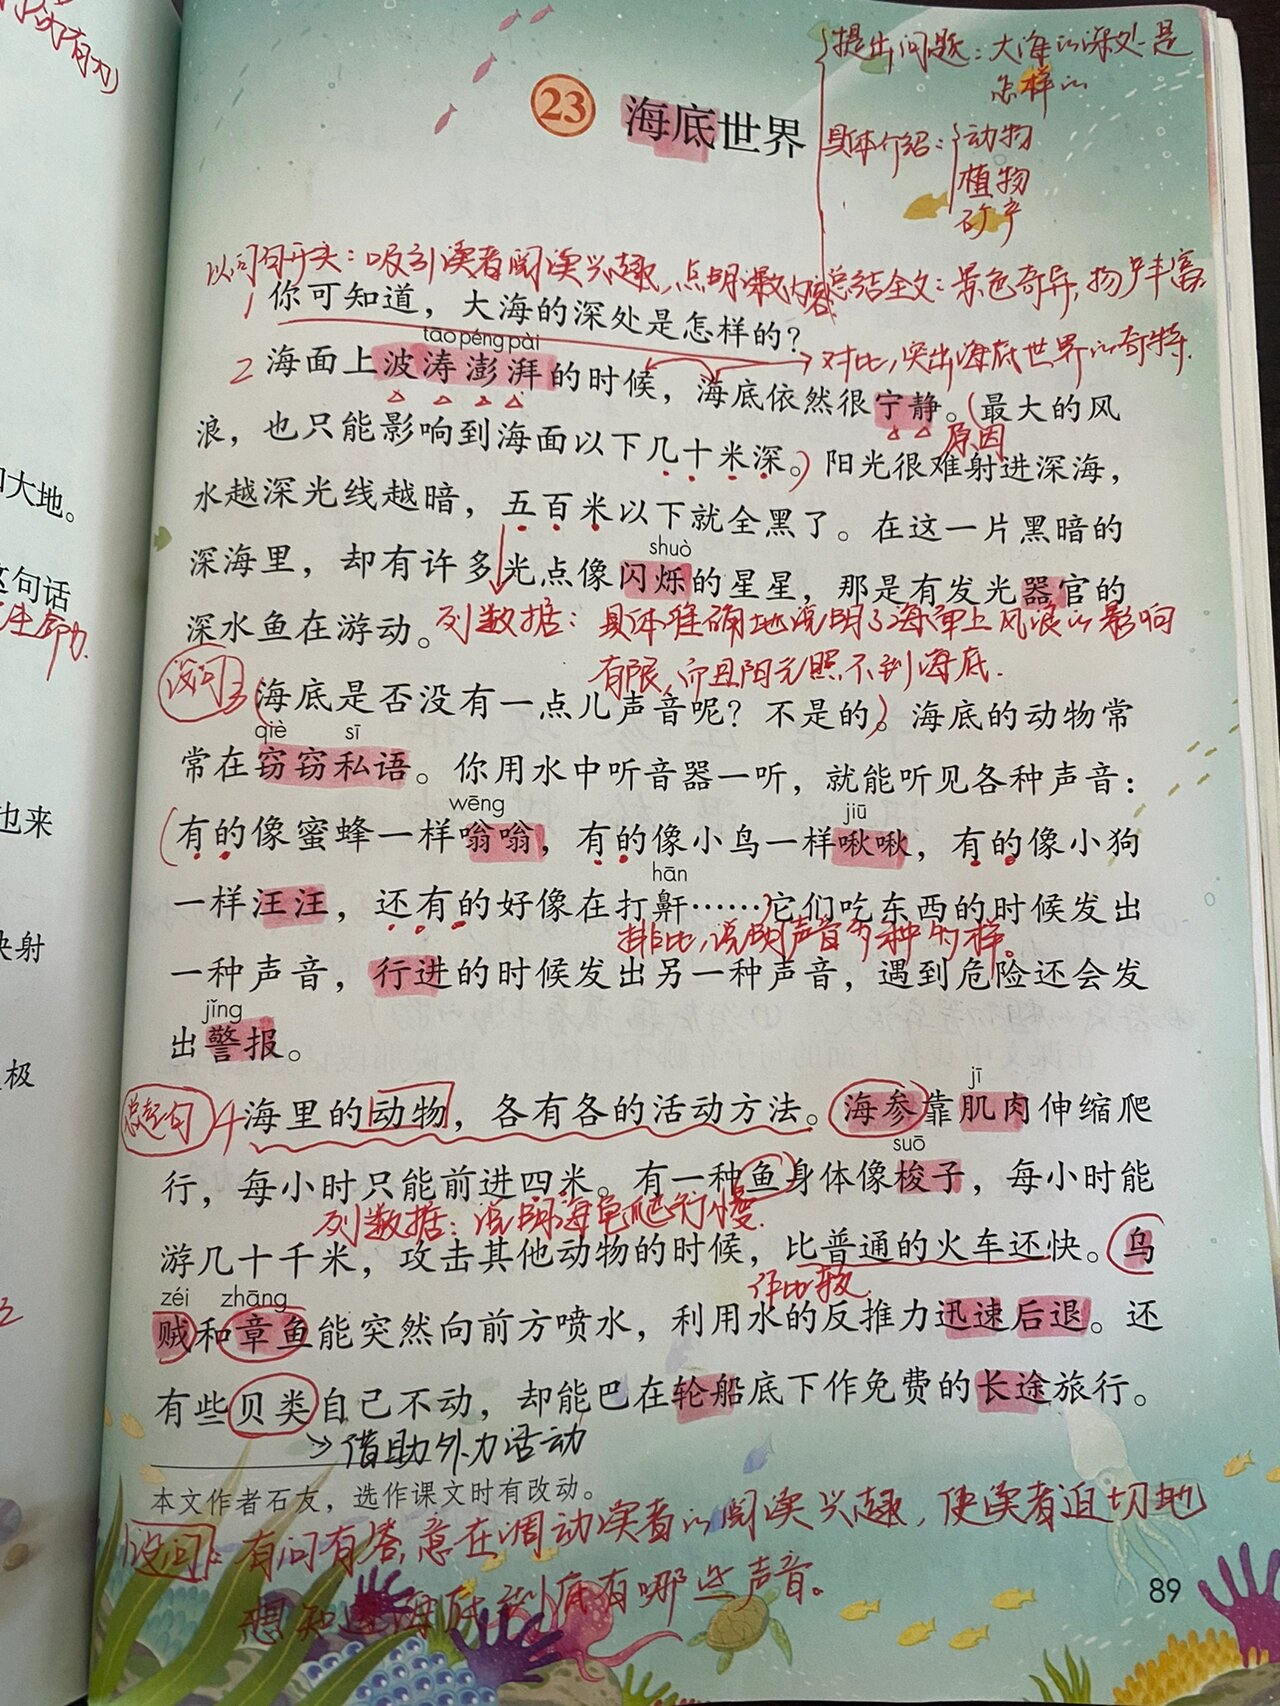 句有力)
提出问题：大海的深处是
怎样的
23 海底世界
具体介绍：动物
植物
矿产
以问句开头：吸引读者阅读兴趣，点明课文内容
总结全文：景色奇异，物产丰富
1 你可知道，大海的深处是怎样的？
tāo péng pài
对比，突出海底世界的奇特.
2 海面上波涛澎湃的时候，海底依然很宁静。(最大的风
原因
浪，也只能影响到海面以下几十米深。)阳光很难射进深海，
水越深光线越暗，五百米以下就全黑了。在这一片黑暗的
shuò
深海里，却有许多光点像闪烁的星星，那是有发光器官的
深水鱼在游动。
列数据：具体准确地说明了海面上风浪的影响
有限，而且阳光照不到海底.
设问
3 (海底是否没有一点儿声音呢？不是的。)海底的动物常
qiè sī
常在窃窃私语。你用水中听音器一听，就能听见各种声音：
wēng jiū
(有的像蜜蜂一样嗡嗡，有的像小鸟一样啾啾，有的像小狗
hān
一样汪汪，还有的好像在打鼾……)它们吃东西的时候发出
排比，说明声音多种多样。
一种声音，行进的时候发出另一种声音，遇到危险还会发
jǐng
出警报。
总起句
jī
4 海里的动物，各有各的活动方法。海参靠肌肉伸缩爬
suō
行，每小时只能前进四米。有一种鱼身体像梭子，每小时能
列数据：说明海参爬行慢.
游几十千米，攻击其他动物的时候，比普通的火车还快。乌
作比较
zéi zhāng
贼和章鱼能突然向前方喷水，利用水的反推力迅速后退。还
有些贝类自己不动，却能巴在轮船底下作免费的长途旅行。
借助外力活动
本文作者石友，选作课文时有改动。
设问：有问有答，意在调动读者的阅读兴趣，使读者迫切地
想知道海底到底有哪些声音。
89
和大地。
这句话
生命力.
也来
映射
极